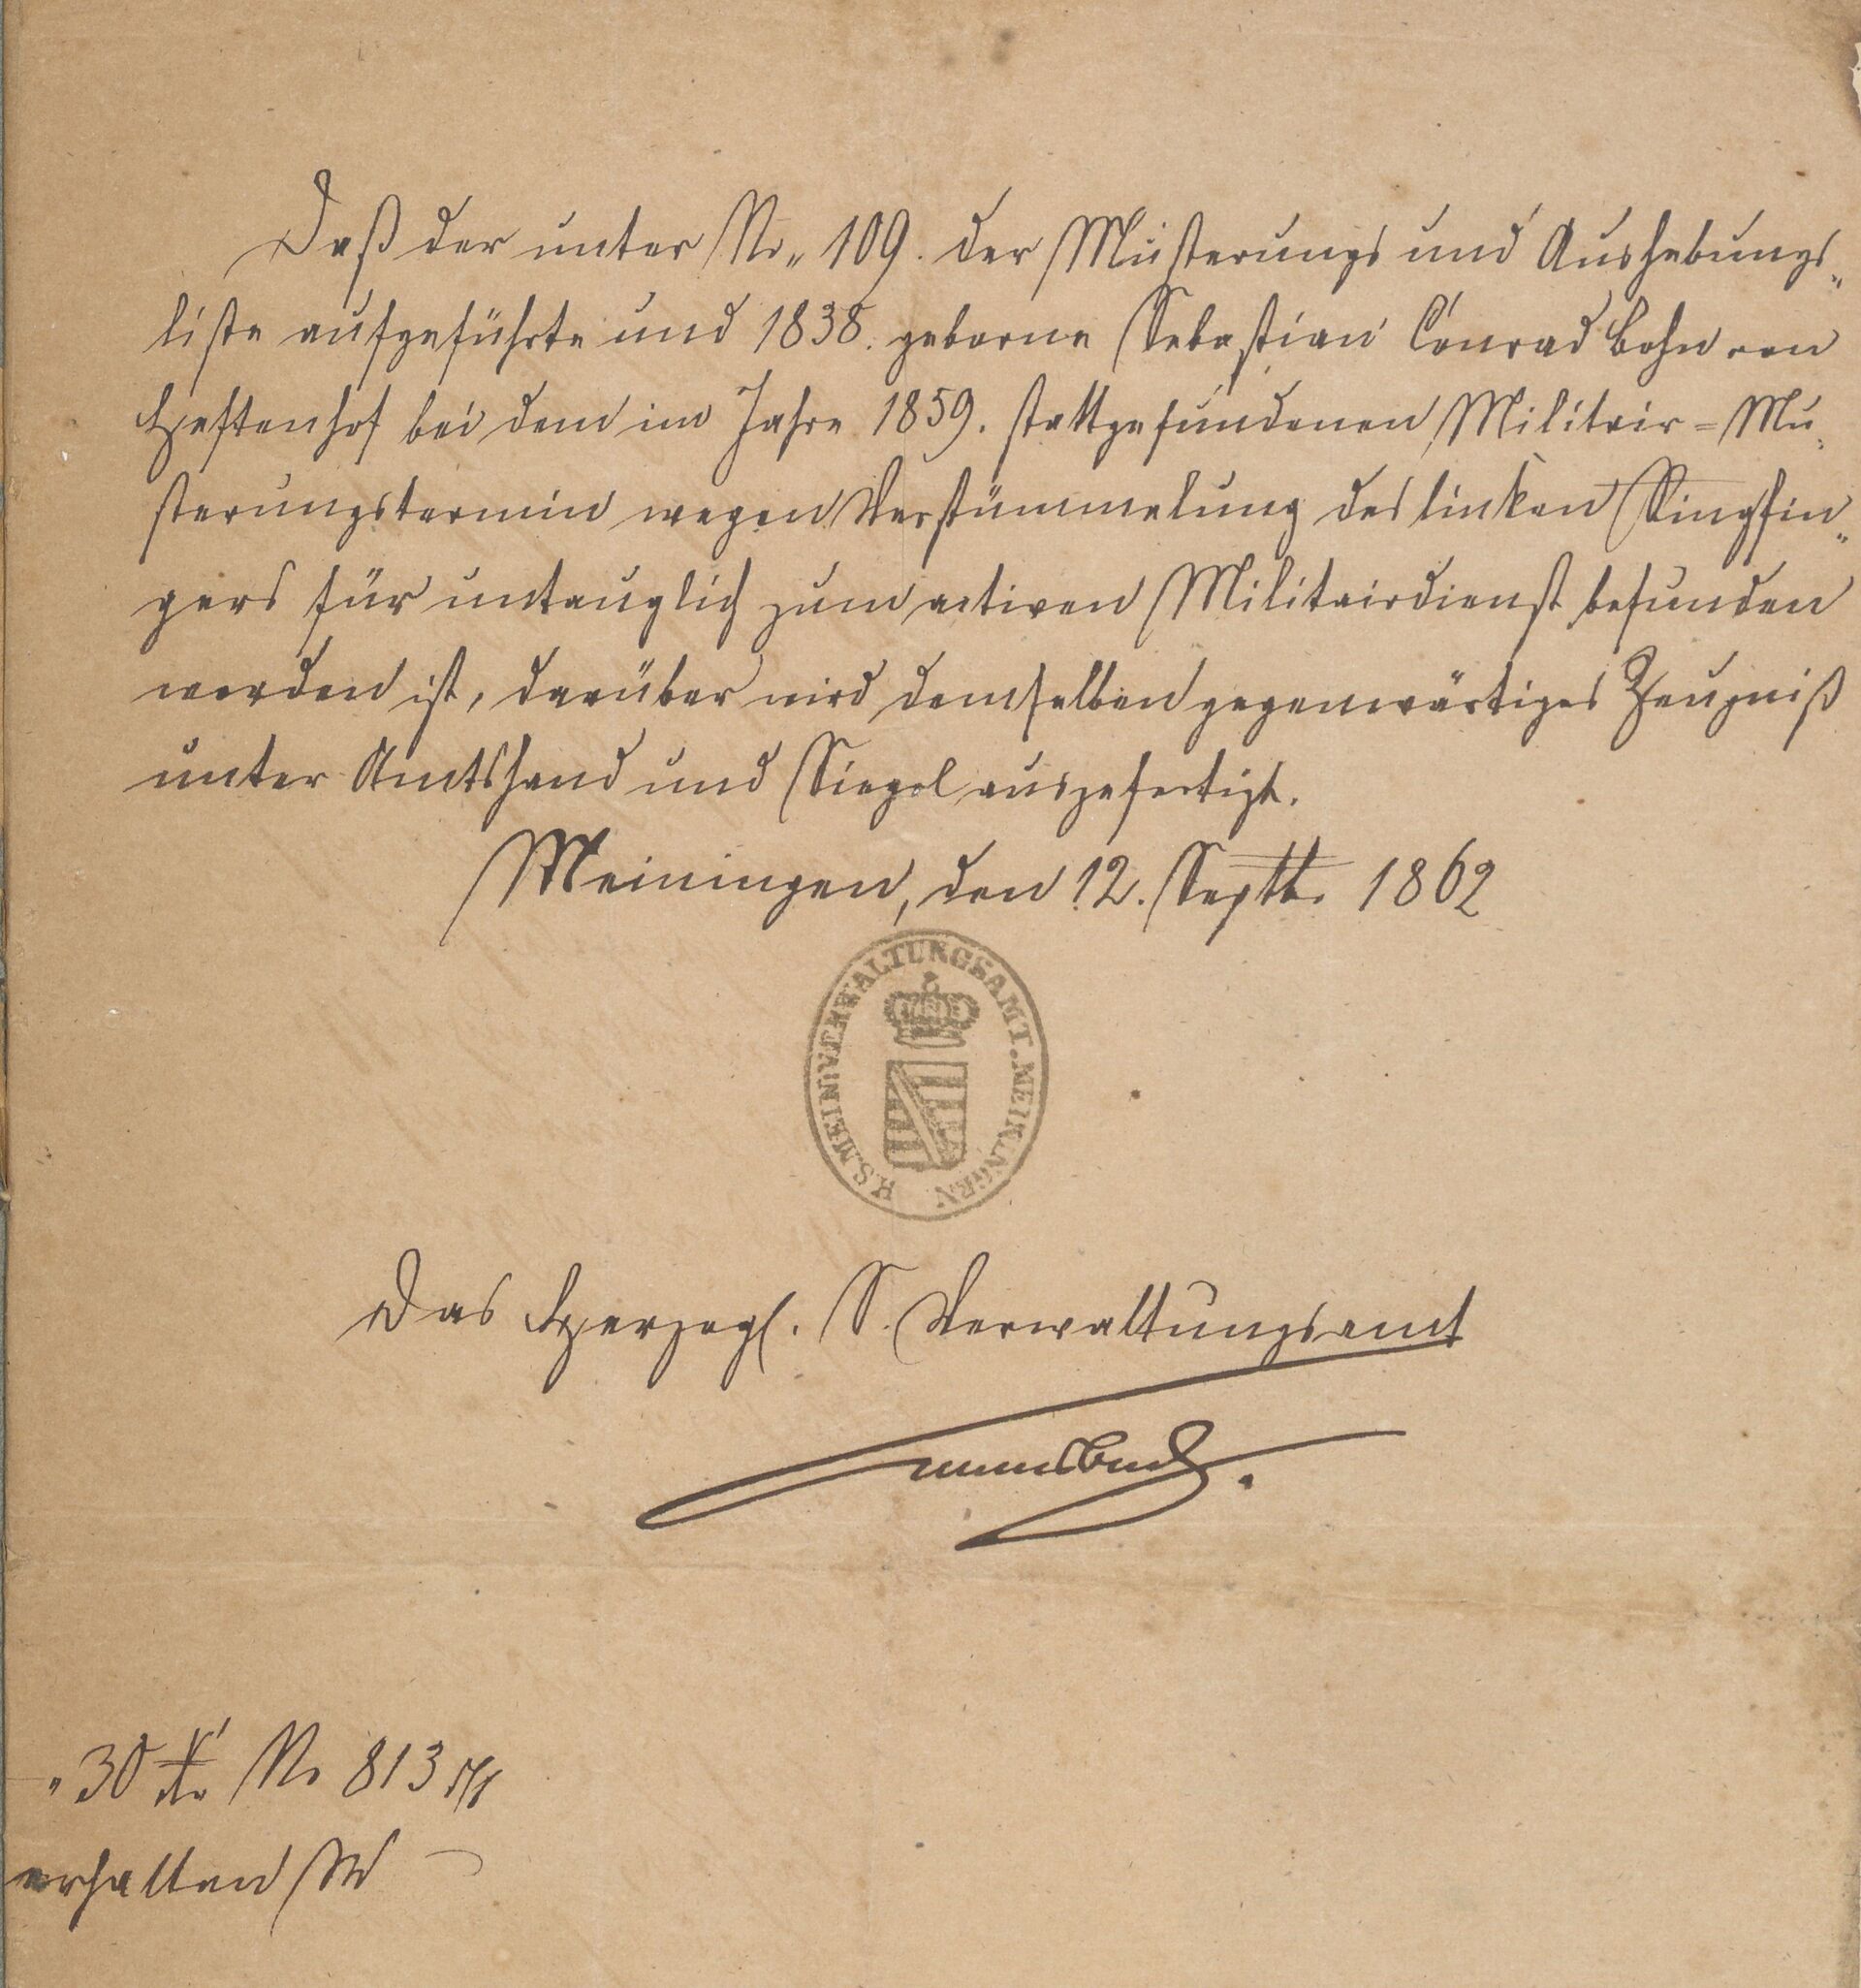 Daß der unter No„ 109. der Musterungs und Aushebungs„
liste aufgeführte und 1838. geborne Sebastian Conrad Bohn von
Heftenhof bei dem im Jahre 1859. stattgefundenen Militair=Mu„
sterungstermin wegen Verstümmelung des linken Ringfin„
gers für untauglich zum activen Militairdienst befunden
worden ist, darüber wird demselben gegenwärtiges Zeugniß
unter Amtshand und Siegel ausgefertigt.
Meiningen, den 12. Septb. 1862
H.S.MEIN.VERWALTUNGSAMT.MEININGEN.
Das Herzogl. S. Verwaltungsamt
„30 Xr No 813
erhalten